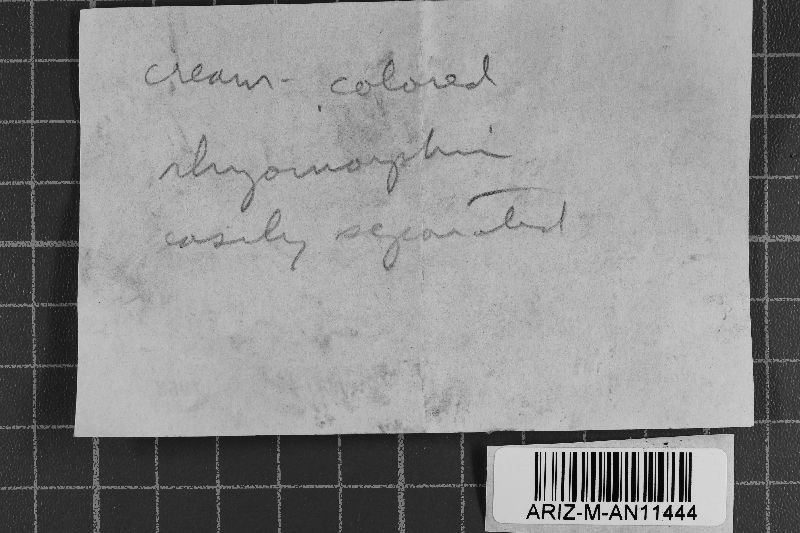 cream-colored
rhyzomorphic
easily separated
ARIZ-M-AN11444